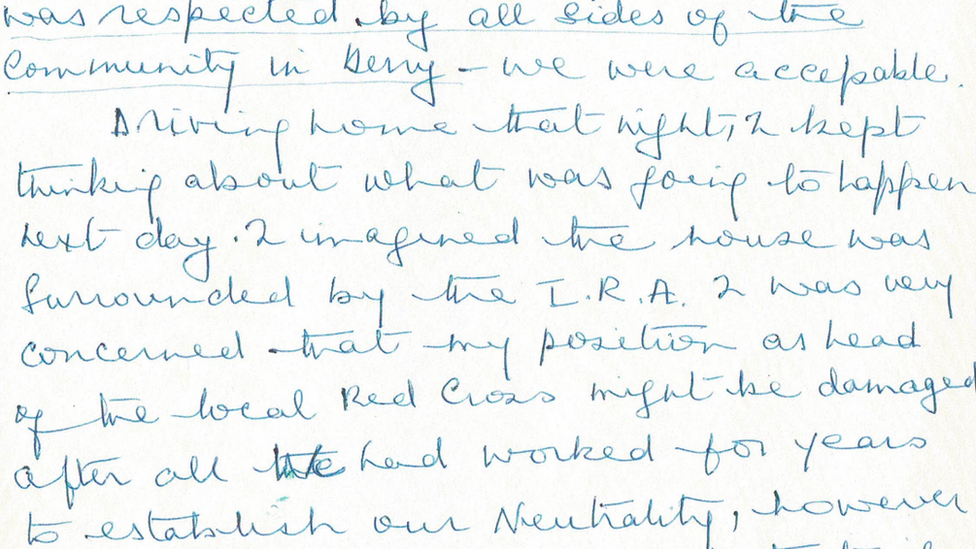 was respected by all sides of the
Community in Derry - we were accepable.
Driving home that night, I kept
thinking about what was going to happen
next day. I imagined the house was
surrounded by the I.R.A. I was very
concerned that my position as head
of the local Red Cross might be damaged
after all we had worked for years
to establish our Neutrality, however